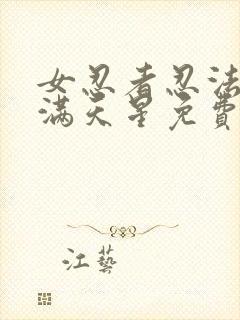 女忍者忍法
满天星免費
江藝